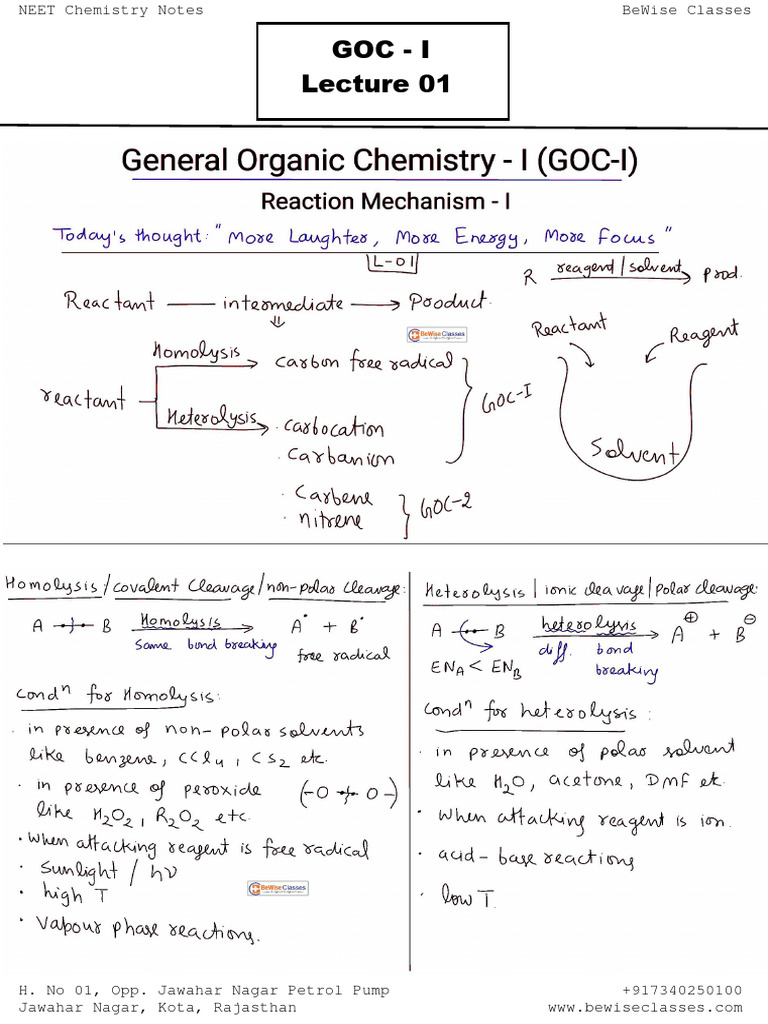 NEET Chemistry Notes BeWise Classes
GOC - I
Lecture 01
General Organic Chemistry - I (GOC-I)
Reaction Mechanism - I
Today's thought: "More Laughter, More Energy, More Focus"
L-01
R reagend/solvent Prod.
Reactant intermediate Product.
BeWise Classes
Reactant Reagent
Solvent
reactant
Homolysis Carbon free radical
Heterolysis
. Carbocation
. Carbanion
GOC-I
. Carbene
. nitrene
GOC-2
Homolysis/covalent Cleavage/non-polar Cleavage:
A B Homolysis A• + B•
Same bond breaking free radical
Condⁿ for Homolysis:
. in presence of non-polar solvents
like benzene, CCl4, CS2 etc.
. in presence of peroxide (-O O-)
like H2O2, R2O2 etc.
• When attacking reagent is free radical
. Sunlight / hν
• high T
BeWise Classes
. Vapour phase reactions.
Heterolysis | ionic cleavage/polar cleavage:
A B heterolysis A⊕ + B⊖
diff. bond
breaking
ENA < ENB
Condⁿ for heterolysis:
. in presence of polar solvent
like H2O, acetone, DMF et.
• When attacking reagent is ion.
• acid-base reactions
• low T.
H. No 01, Opp. Jawahar Nagar Petrol Pump +917340250100
Jawahar Nagar, Kota, Rajasthan www.bewiseclasses.com